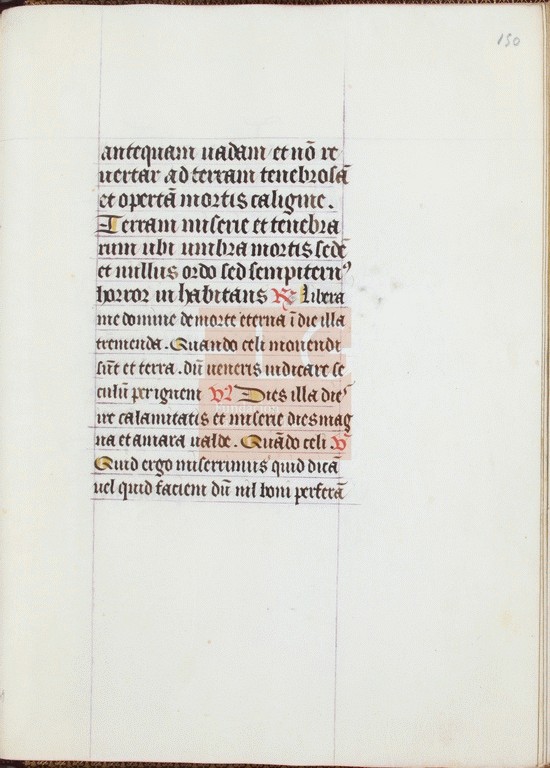 150
antequam uadam et nō re
uertar ad terram tenebrosā
et opertā mortis caligine.
Terram miserie et tenebra
rum ubi umbra mortis sedē
et nullus ordo sed sempitern⁹
horror in habitans ℟ Libera
me domine de morte eterna ī die illa
tremenda. Quando celi mouendi
sūt et terra. dū ueneris iudicare se
culū per ignem ℣ Dies illa die
ire calamitatis et miserie dies mag
na et amara ualde. Quādo celi ℣
Quid ergo miserrimus quid dicā
uel quid faciem dū nil boni perferā